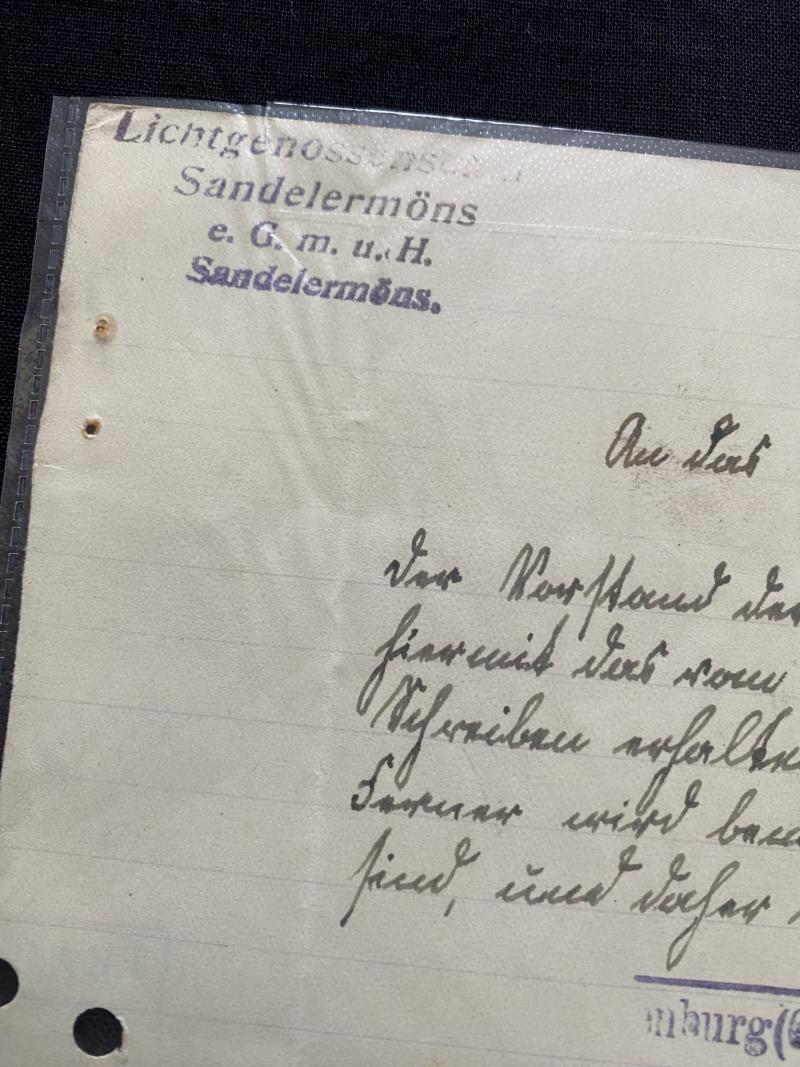 Lichtgenossenschaft
Sandelermöns
e. G. m. u. H.
Sandelermöns.
An das
der Vorstand der
hiermit das vom
Schreiben erhalten
Ferner wird
sind, und daher
mburg(